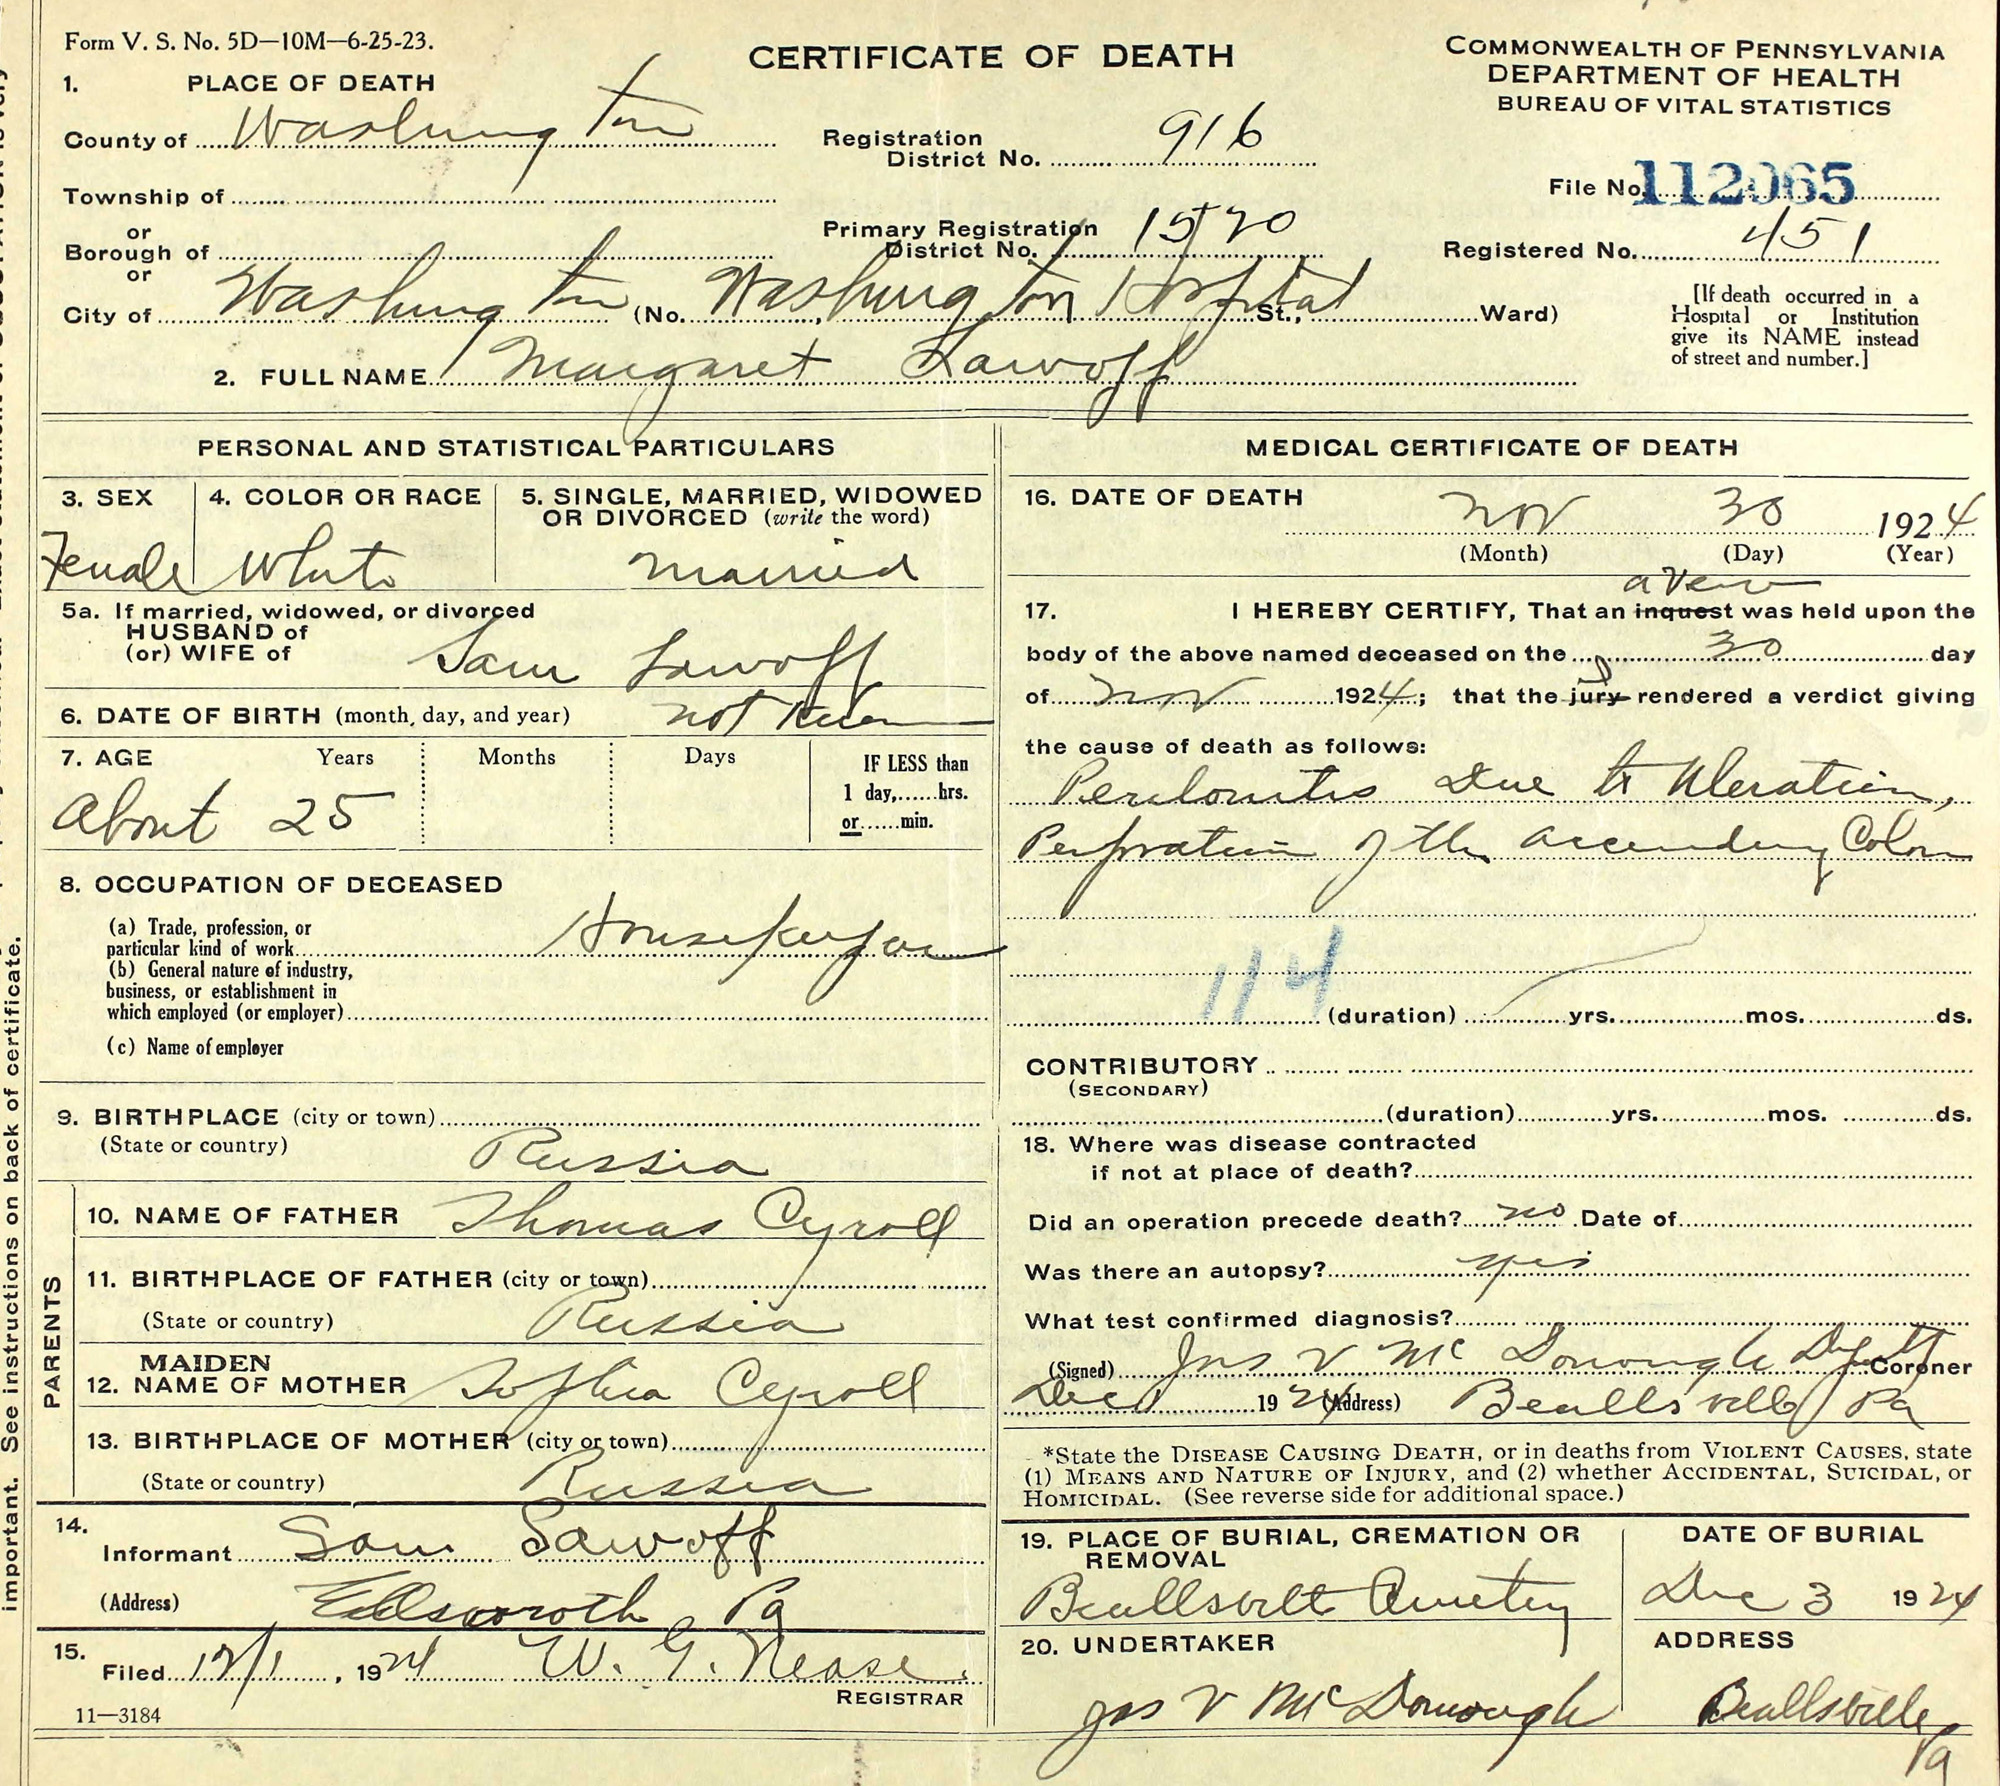 Form V. S. No. 5D—10M—6-25-23.
CERTIFICATE OF DEATH
COMMONWEALTH OF PENNSYLVANIA
DEPARTMENT OF HEALTH
BUREAU OF VITAL STATISTICS
1. PLACE OF DEATH
County of Washington
Registration District No. 916
File No. 112065
Township of
or
Primary Registration District No. 1520
Registered No. 451
Borough of
or
City of Washington (No. Washington Hospital St., Ward)
[If death occurred in a
Hospital or Institution
give its NAME instead
of street and number.]
2. FULL NAME Margaret Sawoff
PERSONAL AND STATISTICAL PARTICULARS
3. SEX
Female
4. COLOR OR RACE
White
5. SINGLE, MARRIED, WIDOWED
OR DIVORCED (write the word)
married
5a. If married, widowed, or divorced
HUSBAND of
(or) WIFE of Sam Sawoff
6. DATE OF BIRTH (month, day, and year) not
7. AGE Years Months Days
About 25
IF LESS than
1 day,......hrs.
or......min.
8. OCCUPATION OF DECEASED
(a) Trade, profession, or
particular kind of work Housekeeper
(b) General nature of industry,
business, or establishment in
which employed (or employer)
(c) Name of employer
9. BIRTHPLACE (city or town)
(State or country) Russia
PARENTS
10. NAME OF FATHER Thomas Cyroll
11. BIRTHPLACE OF FATHER (city or town)
(State or country) Russia
12. MAIDEN NAME OF MOTHER Sophia Cyroll
13. BIRTHPLACE OF MOTHER (city or town)
(State or country) Russia
14.
Informant Sam Sawoff
(Address) Ellsworth Pa
15.
Filed 12/1, 1924 W. G. Nease.
REGISTRAR
11—3184
MEDICAL CERTIFICATE OF DEATH
16. DATE OF DEATH Nov 30 1924
(Month) (Day) (Year)
a View
17. I HEREBY CERTIFY, That an inquest was held upon the
body of the above named deceased on the 30 day
of Nov 1924; that the jury rendered a verdict giving
the cause of death as follows:
Peritonitis Due to Ulceration,
Perforation of the ascending Colon
114 (duration) yrs. mos. ds.
CONTRIBUTORY
(SECONDARY)
(duration) yrs. mos. ds.
18. Where was disease contracted
if not at place of death?
Did an operation precede death? no Date of
Was there an autopsy? yes
What test confirmed diagnosis?
(Signed) Jas V McDonough Dept Coroner
Dec 1 1924 (Address) Beallsville Pa
*State the DISEASE CAUSING DEATH, or in deaths from VIOLENT CAUSES, state
(1) MEANS AND NATURE OF INJURY, and (2) whether ACCIDENTAL, SUICIDAL, or
HOMICIDAL. (See reverse side for additional space.)
19. PLACE OF BURIAL, CREMATION OR
REMOVAL
Beallsville Cemetery
DATE OF BURIAL
Dec 3 1924
20. UNDERTAKER
Jas V McDonough
ADDRESS
Beallsville Pa
important. See instructions on back of certificate.